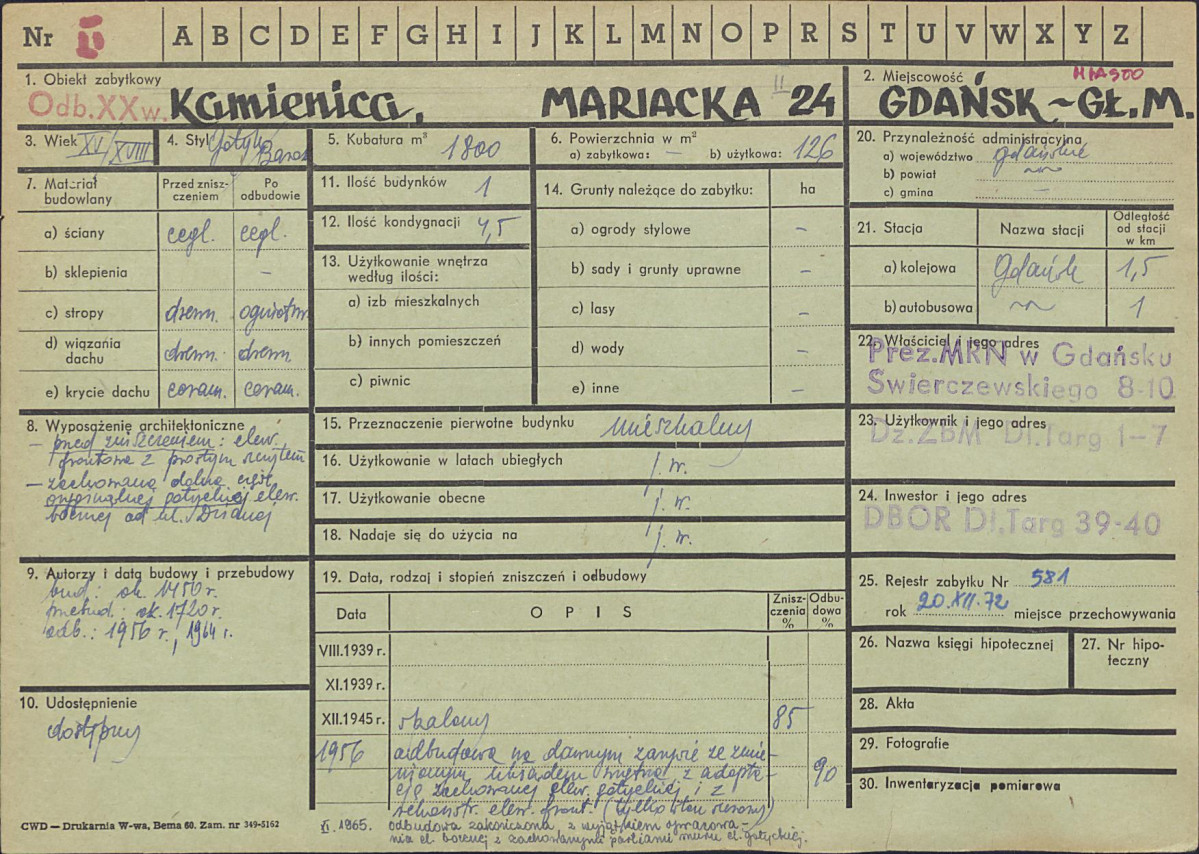 Nr II A B C D E F G H I J K L M N O P R S T U V W X Y Z
1. Obiekt zabytkowy
Odb. XX w. Kamienica, MARIACKA 24
2. Miejscowość MIASTO
GDAŃSK ~ GŁ. M.
3. Wiek XV/XVIII
4. Styl Gotyk Barok
5. Kubatura m³ 1800
6. Powierzchnia w m²
a) zabytkowa: — b) użytkowa: 126
7. Materiał budowlany
Przed zniszczeniem
Po odbudowie
a) ściany cegl. cegl.
b) sklepienia –
c) stropy drewn. ogniotrw.
d) wiązania dachu drewn. drewn.
e) krycie dachu ceram. ceram.
8. Wyposażenie architektoniczne
– przed zniszczeniem: elew.
frontowa z prostym
– zachowana dolna część
oryginalnej gotyckiej elew.
bocznej od ul.
9. Autorzy i data budowy i przebudowy
bud: ok. 1450 r.
przebud: ok. 1720 r.
odb.: 1956 r., 1964 r.
10. Udostępnienie
dostępny
11. Ilość budynków 1
12. Ilość kondygnacji 4,5
13. Użytkowanie wnętrza
według ilości:
a) izb mieszkalnych
b) innych pomieszczeń
c) piwnic
14. Grunty należące do zabytku: ha
a) ogrody stylowe –
b) sady i grunty uprawne –
c) lasy –
d) wody –
e) inne –
15. Przeznaczenie pierwotne budynku mieszkalny
16. Użytkowanie w latach ubiegłych j. w.
17. Użytkowanie obecne j. w.
18. Nadaje się do użycia na j. w.
19. Data, rodzaj i stopień zniszczeń i odbudowy
Data
OPIS
Zniszczenia %
Odbudowa %
VIII.1939 r.
XI.1939 r.
XII.1945 r. spalony 85
1956 odbudowa na dawnym zarysie ze zmie-
nionym układem wnętrza z adapta-
cją zachowanej elew. gotyckiej i z 90
rekonstr. elew. front. (tylko stan surowy)
XI. 1965. odbudowa zakończona, z wyjątkiem opracowa-
nia el. bocznej z zachowanymi partiami muru el. gotyckiej.
20. Przynależność administracyjna
a) województwo gdańskie
b) powiat ~~
c) gmina –
21. Stacja
Nazwa stacji
Odległość od stacji w km
a) kolejowa Gdańsk 1,5
b) autobusowa ~~ 1
22. Właściciel i jego adres
Prez. MRN w Gdańsku
Świerczewskiego 8-10
23. Użytkownik i jego adres
Dz. ZBM Dł. Targ 1-7
24. Inwestor i jego adres
DBOR Dł. Targ 39-40
25. Rejestr zabytku Nr 581
rok 20.XII.72 miejsce przechowywania
26. Nazwa księgi hipotecznej
27. Nr hipoteczny
28. Akta
29. Fotografie
30. Inwentaryzacja pomiarowa
CWD — Drukarnia W-wa, Bema 60. Zam. nr 349-5162